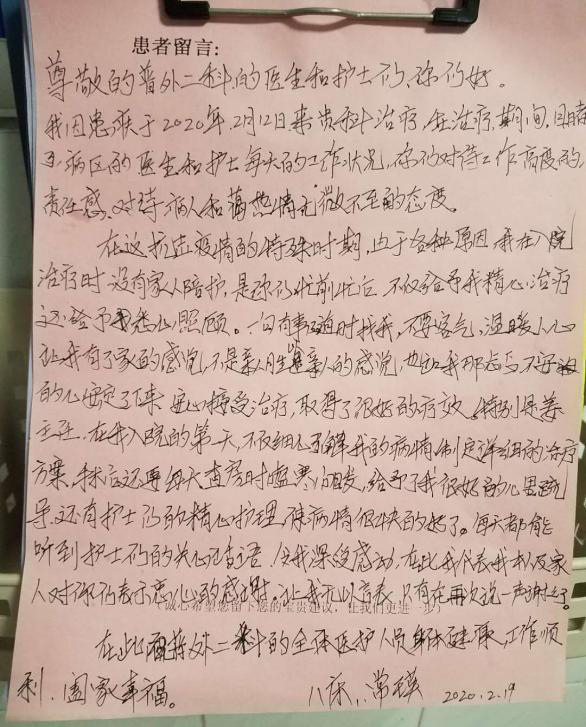 患者留言:
尊敬的普外二科的医生和护士们,你们好。
我因患疾于2020年2月12日来贵科治疗,在治疗期间,目睹
了病区的医生和护士每天的工作状况,你们对待工作高度的
责任感,对待病人和蔼热情无微不至的态度。
在这抗击疫情的特殊时期,由于各种原因我在入院
治疗时没有家人陪护,是你们忙前忙后不仅给予我精心治疗
还给予我悉心照顾。一句有事随时找我,不要客气,温暖人心
让我有了家的感觉,不是亲人胜似亲人的感觉,也让我那忐忑不安
的心安定了下来 安心接受治疗,取得了很好的疗效。特别是姜
主任,在我入院的第一天,不仅细心了解我的病情制定详细的治疗
方案,术后还再每天查房时嘘寒问暖,给予了我很好的心里疏
导,还有护士们的精心护理,使病情很快的好了。每天都能
听到护士们的关心话语,令我深受感动,在此我代表我本人及家
人对你们表示衷心的感谢。让我无以言表,只有在再次说一声谢谢了。
(诚心希望您留下您的宝贵建议,让我们更进一步)
在此祝普外二科的全体医护人员身体健康,工作顺
利,阖家幸福。
八床:常瑛 2020.2.19